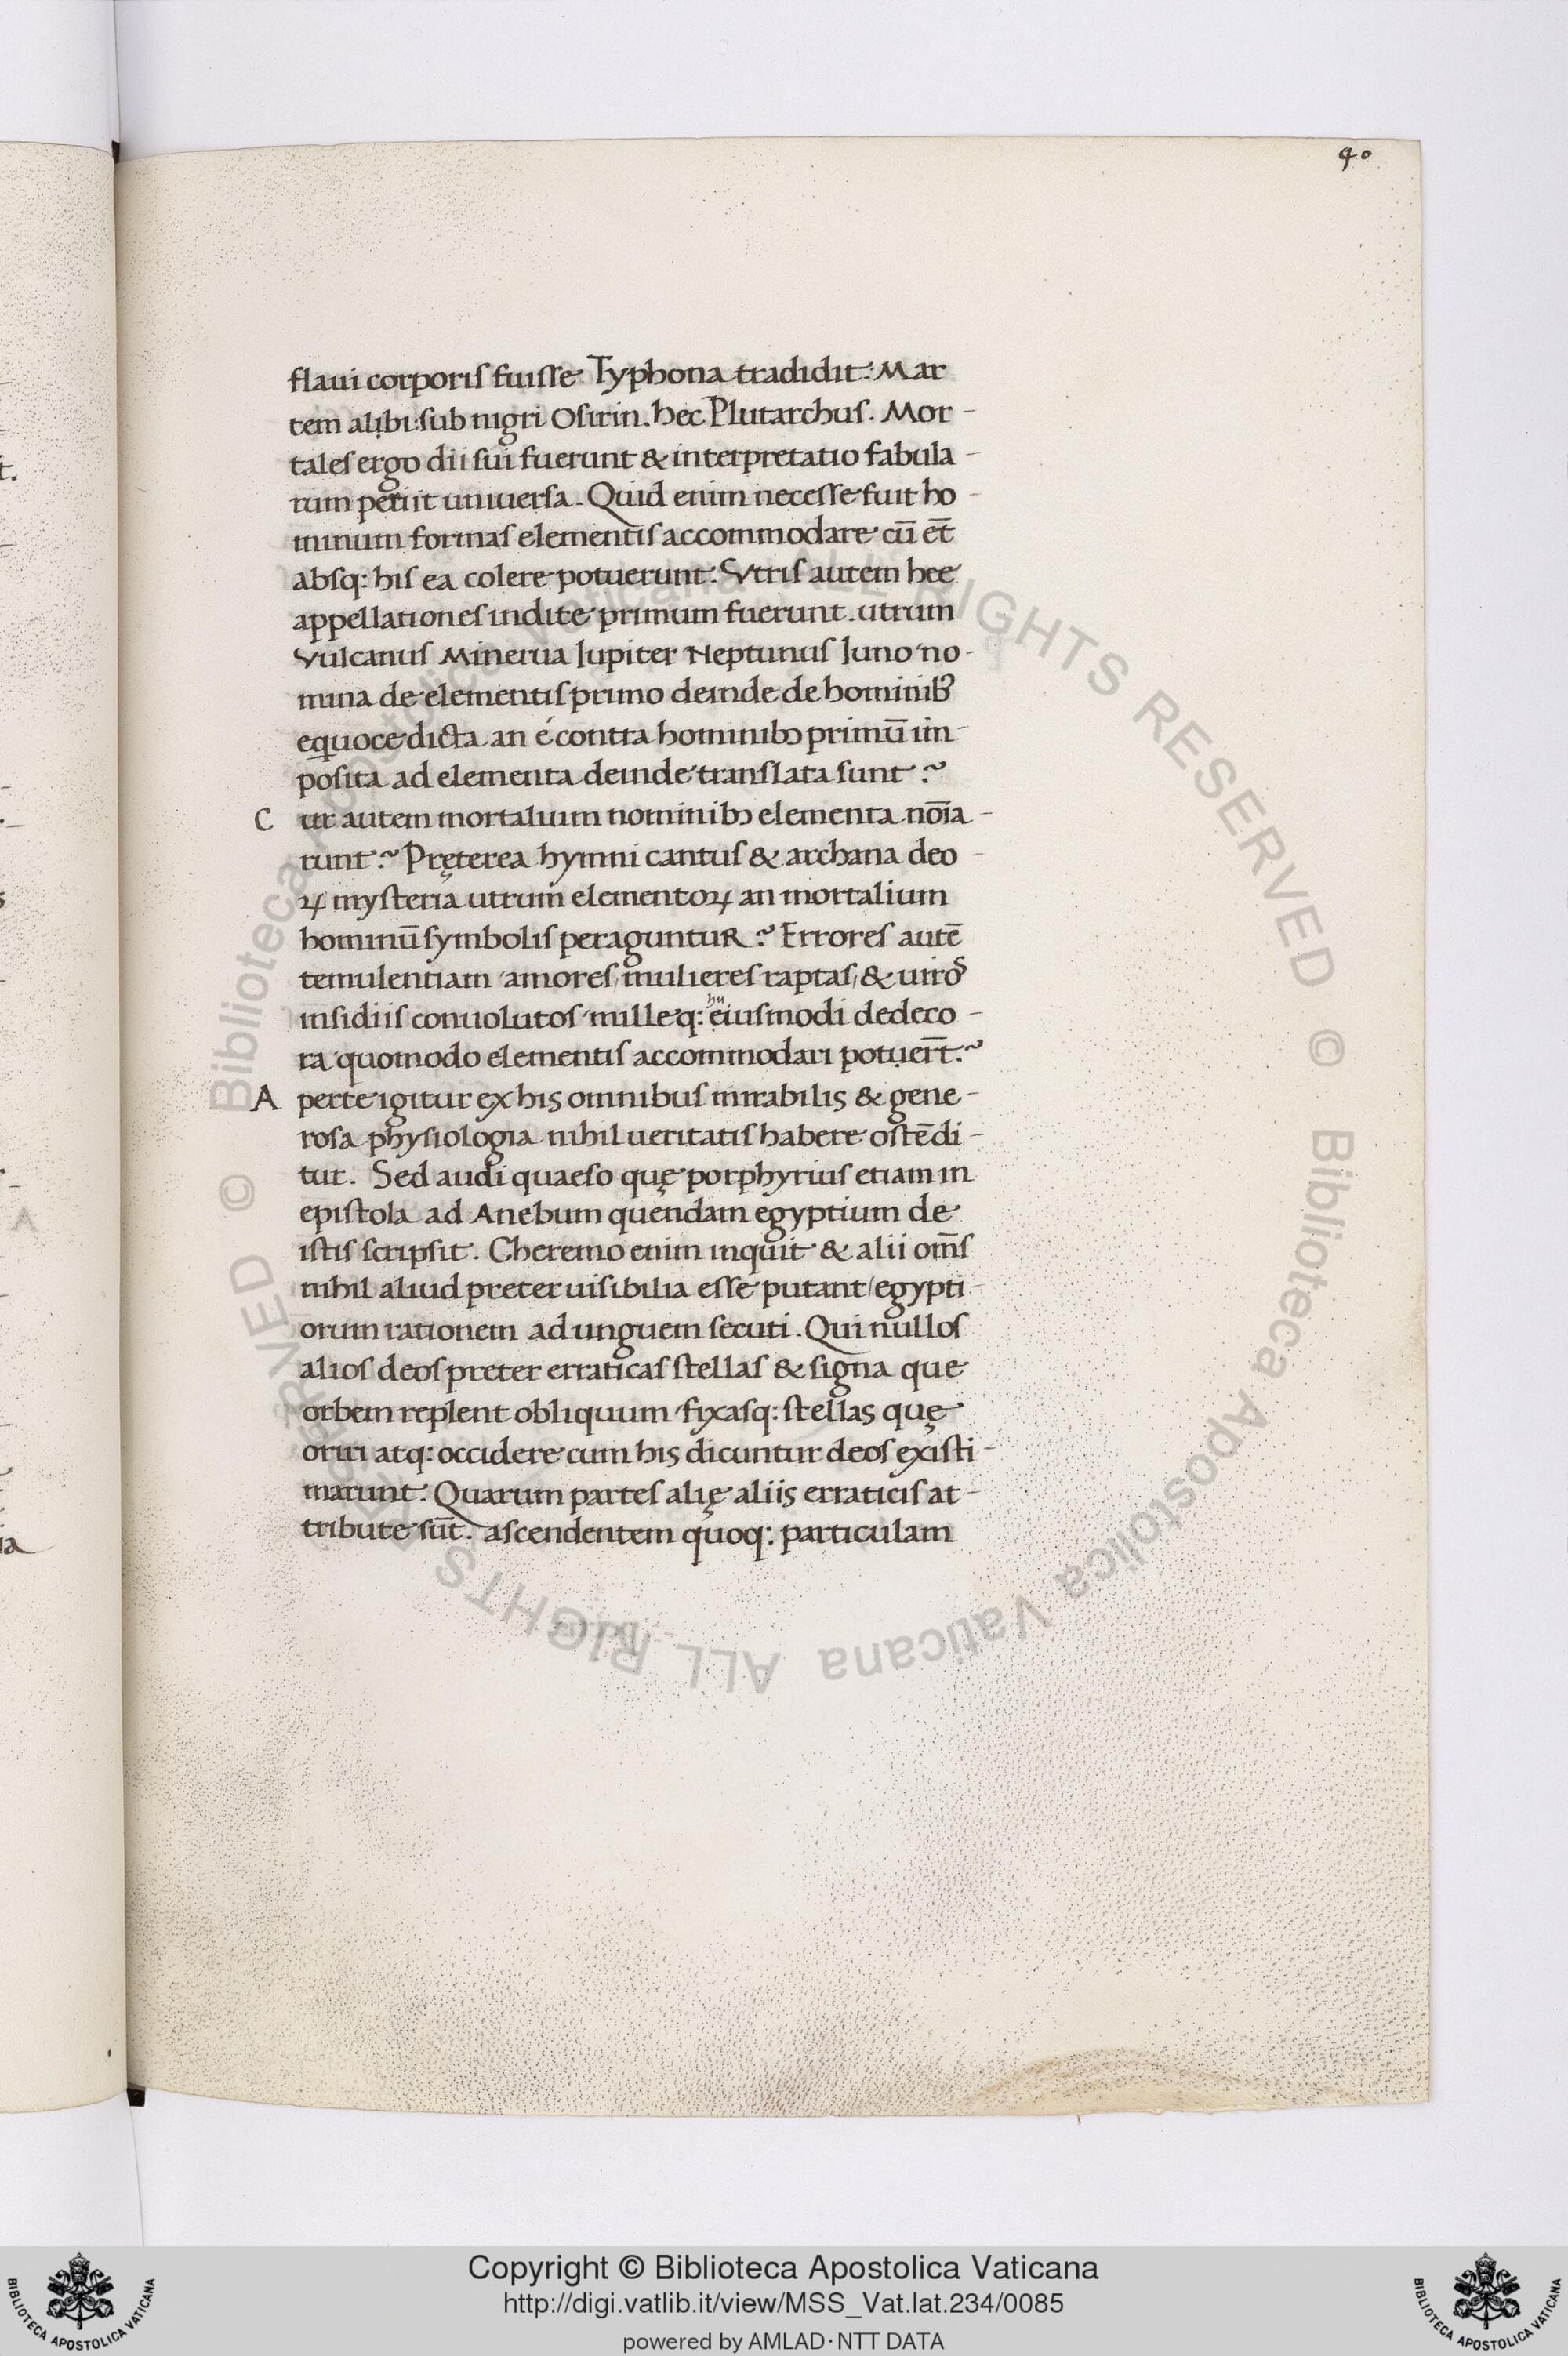 40
flaui corporis fuisse Typhona tradidit: Mar
tem alibi: sub nigri Osirin. hec Plutarchus. Mor-
tales ergo dii sui fuerunt & interpretatio fabula-
rum periit uniuersa. Quid enim necesse fuit ho-
minum formas elementis accommodare cū et̄
absq: his ea colere potuerunt: Vtris autem hee
appellationes indite primum fuerunt. utrum
Vulcanus Minerua Iupiter Neptunus Iuno no-
mina de elementis primo deinde de hominibꝰ
equoce dicta an é contra hominibꝫ primū im-
posita ad elementa deinde translata sunt?
C ur autem mortalium nominibꝫ elementa nōia-
runt? Pręterea hymni cantus & archana deo-
ꝝ mysteria utrum elementoꝝ an mortalium
hominū symbolis peraguntur? Errores autē
temulentiam amores/ mulieres raptas/ & uiros
insidiis conuolutos mille q: eiusmodi dedeco-
hu
ra quomodo elementis accommodari potuer̄t?
A perte igitur ex his omnibus mirabilis & gene-
rosa physiologia nihil ueritatis habere ostēdi-
tur. Sed audi quaeso quę porphyrius etiam in
epistola ad Anebum quendam egyptium de
istis scripsit. Cheremo enim inquit & alii om̄s
nihil aliud preter uisibilia esse putant/ egypti-
orum rationem ad unguem secuti. Qui nullos
alios deos preter erraticas stellas & signa que
orbem replent obliquum fixasq: stellas quę
oriri atq: occidere cum his dicuntur deos existi-
marunt: Quarum partes alię aliis erraticis at-
tribute sūt. ascendentem quoq: particulam
© Biblioteca Apostolica Vaticana ALL RIGHTS RESERVED © Biblioteca Apostolica Vaticana ALL RIGHTS RESERVED
Copyright © Biblioteca Apostolica Vaticana
http://digi.vatlib.it/view/MSS_Vat.lat.234/0085
powered by AMLAD·NTT DATA
BIBLIOTECA APOSTOLICA VATICANA
BIBLIOTECA APOSTOLICA VATICANA